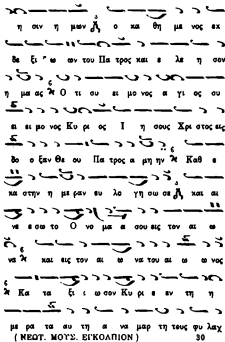 η σιν η μων ο κα θη με νος εκ
δε ξι ω ων του Πα τρος και ε λε η σον
η μα ας Ο τι συ ει μο νος α γι ος συ
ει ει μο νος Κυ ρι ος Ι η σους Χρι στος εις
δο ο ξαν Θε ου Πα τρος α μη ην Καθ ε
κα στην η με ραν ευ λο γη σω σε και αι
νε ε σω το Ο νο μα α σου εις τον αι ω
να και εις τον αι ω να του αι ω ω νος
Κα τα ξι ι ω σον Κυ ρι ε εν τη η
με ρα τα αυ τη α να μαρ τη τους φυ λαχ
( ΝΕΩΤ. ΜΟΥΣ. ΕΓΚΟΛΠΙΟΝ ) 30